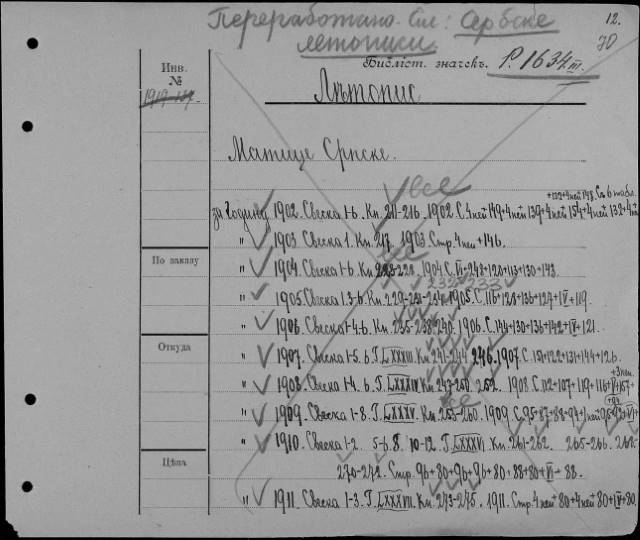 Переработано. См: Сербске
летописи
12.
70
Библіот. значекъ. Р. 1634 III.
Инв.
№
1919-137.
Лѣтопис
Матице Српске.
все
за Годину 1902. Свеска 1-6. Кн. 211-216. 1902. С. 4 неп 149+4 неп 139+4 неп 154+4 неп 132+4 неп
" 1903 Свеска 1. Кн. 217. 1903. Стр. 4 неп + 146.
все
" 1904. Свеска 1-6. Кн. 223-228. 1904 С. VI+248+120+113+130+143.
По заказу
232 233
" 1905. Свеска 1. 3-6. Кн. 229-231-234. 1905. С. 116+128+136+127+IV+119.
" 1906. Свеска 1-4-6. Кн. 235-238. 240. 1906. С. 144+130+136+142+IV+121.
Откуда
" 1907. Свеска 1-5. 6. Г. LXXXIII. Кн. 241-244 246. 1907. С. 151+122+131+144+126.
" 1908. Свеска 1-4. 6. Г. LXXXIV Кн. 247-250. 252. 1908 С. 112+107+119+116+V+167+
+3 неп.
все
" 1909. Свеска 1-8. Г. LXXXV. Кн. 253-260. 1909. С. 95+87+88+94+1 неп
" 1910. Свеска 1-2. 5-6. 8. 10-12. Г. LXXXVI. Кн. 261-262. 265-266. 268.
Цѣна
270-272. Стр. 96+80+96+96+80+88+80+VI+88.
" 1911. Свеска 1-3. Г. LXXXVII. Кн. 273-275. 1911. Стр. 4 неп+80+4 неп 80+IV+80.